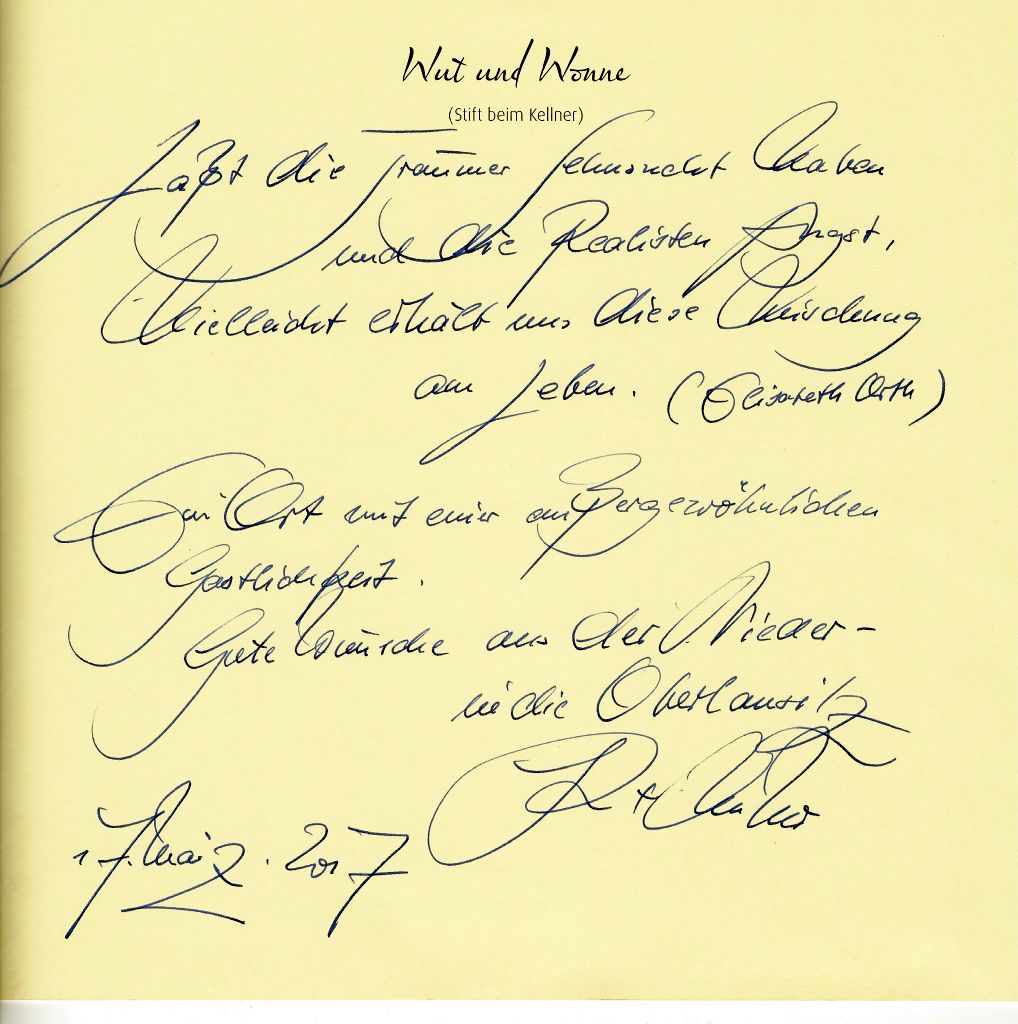 Wut und Wonne
(Stift beim Kellner)
Laßt die Träumer Sehnsucht haben
und die Realisten Angst,
Vielleicht erhält uns diese Mischung
am Leben. (Elisabeth Orth)
Ein Ort mit einer außergewöhnlichen
Gastlichkeit.
Gute Wünsche aus der Nieder-
in die Oberlausitz
17. März. 2017